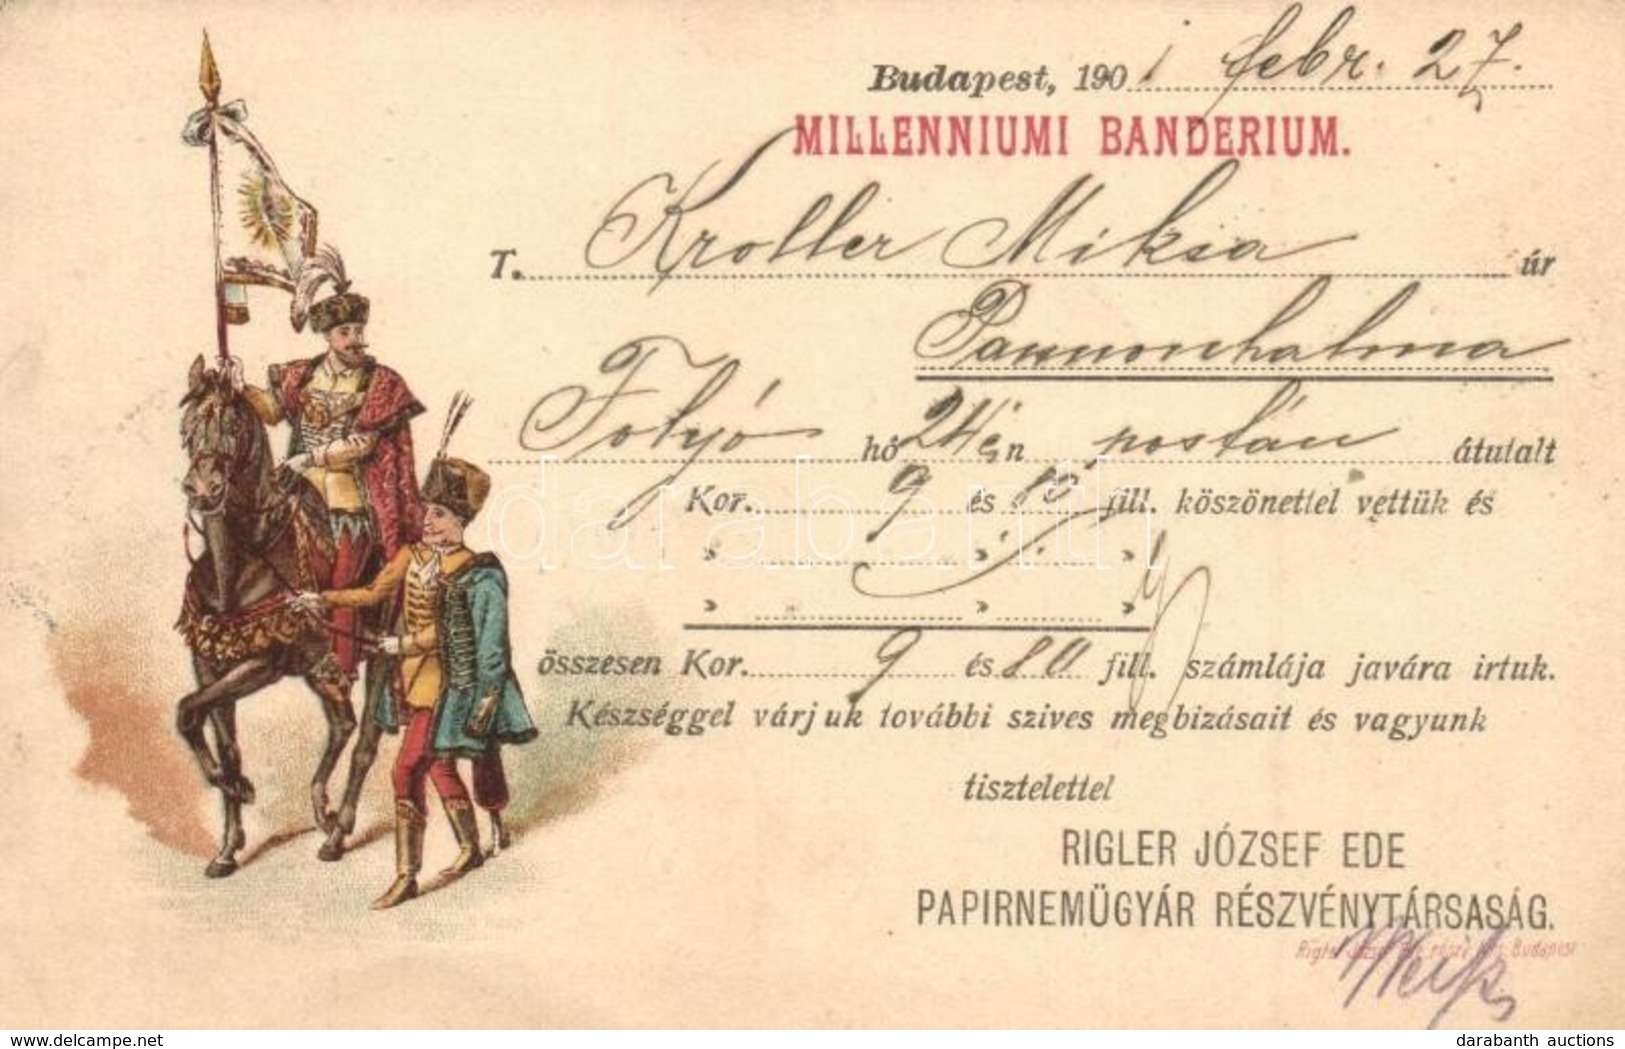 Budapest, 1901 febr. 27.
MILLENNIUMI BANDERIUM.
T. Kroller Miksa úr
Pannonhalma
Folyó hó 24én postán átutalt
Kor. 9 és 80 fill. köszönettel vettük és
» » »
» » »
összesen Kor. 9 és 80 fill. számlája javára irtuk.
Készséggel várjuk további szives megbizásait és vagyunk
tisztelettel
RIGLER JÓZSEF EDE
PAPIRNEMŰGYÁR RÉSZVÉNYTÁRSASÁG.
Rigler József Ede Budapest
darabanth
delcampe.net
darabanth auctions